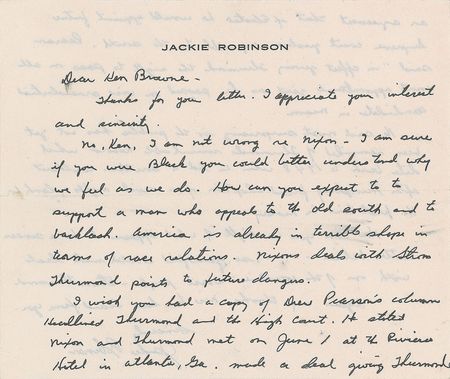 JACKIE ROBINSON
Dear Ken Browne -
Thanks for your letter. I appreciate your interest
and sincerity.
No, Ken, I am not wrong re Nixon - I am sure
if you were Black you could better understand why
we feel as we do. How can you expect to to
support a man who appeals to the old south and to
backlash. America is already in terrible shape in
terms of race relations. Nixons deals with Strom
Thurmond points to future dangers.
I wish you had a copy of Drew Pearson's column
Headlines Thurmond and the High Court. He stated
Nixon and Thurmond met on June 1 at the Riviera
Hotel in atlanta, Ga. made a deal giving Thurmond